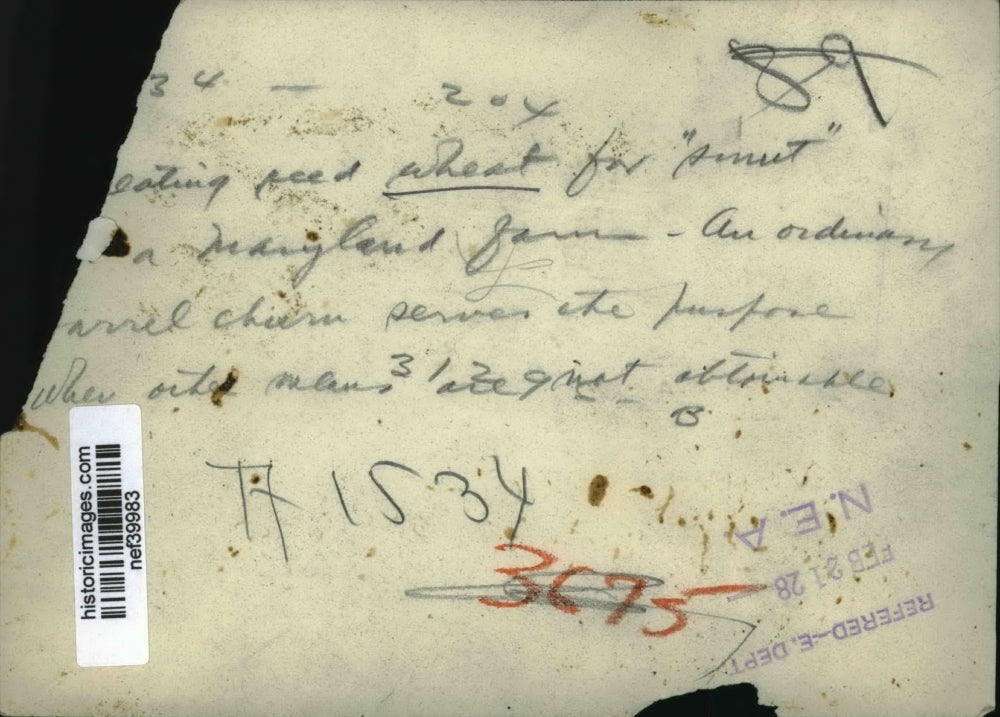 89
34 — 204
eating seed wheat for "smut"
a Maryland farm - An ordinary
arrel churn serves the purpose
when other means are not obtainable
B
1534
3675
N.E.A
FEB 21 28
REFERRED-E. DEPT
historicimages.com
nef39983